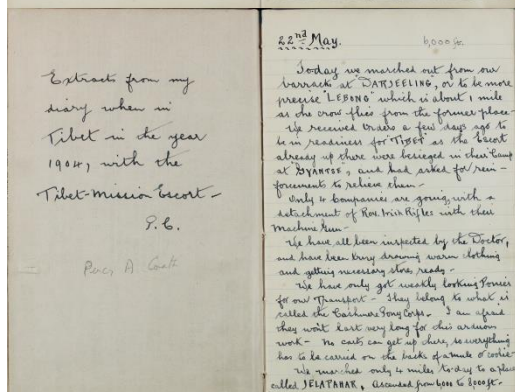 Extracts from my
diary when in
Tibet in the year
1904, with the
Tibet-Mission Escort -
P.C.
Percy A
22nd May.
6,000 ft.
Today we marched out from our
barracks at DARJEELING, or to be more
precise "LEBONG" which is about 1 mile
as the crow flies from the former place -
We received orders a few days ago to
be in readiness for "TIBET" as the Escort
already up there were besieged in their Camp
at "GYANTSE", and had asked for rein-
forcement to relieve them -
Only 4 Companies are going, with a
detachment of Roy. Irish Rifles with their
Machine Gun -
We have all been inspected by the Doctor,
and have been busy drawing warm clothing
and getting necessary stores ready -
We have only got weakly looking Ponies
for our Transport - They belong to what is
called the Cashmere Pony Corps. - I am afraid
they won't last very long for this arduous
work - No carts can get up there, so everything
has to be carried on the backs of a mule or coolie -
We marched only 4 miles to-day to a place
called JELAPAHAR, Ascended from 6000 to 8000 ft -